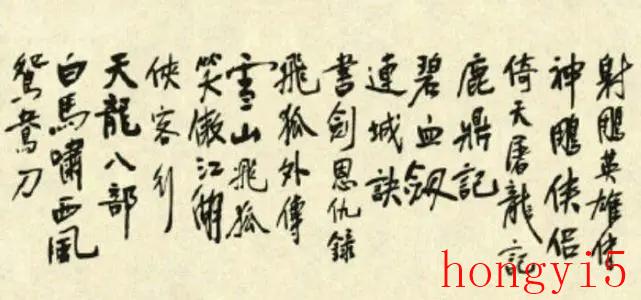 射鵰英雄传
神鵰侠侣
倚天屠龍記
鹿鼎記
碧血劍
連城訣
書劍恩仇錄
飛狐外傳
雪山飛狐
笑傲江湖
俠客行
天龍八部
白馬嘯西風
鴛鴦刀
hongyi5